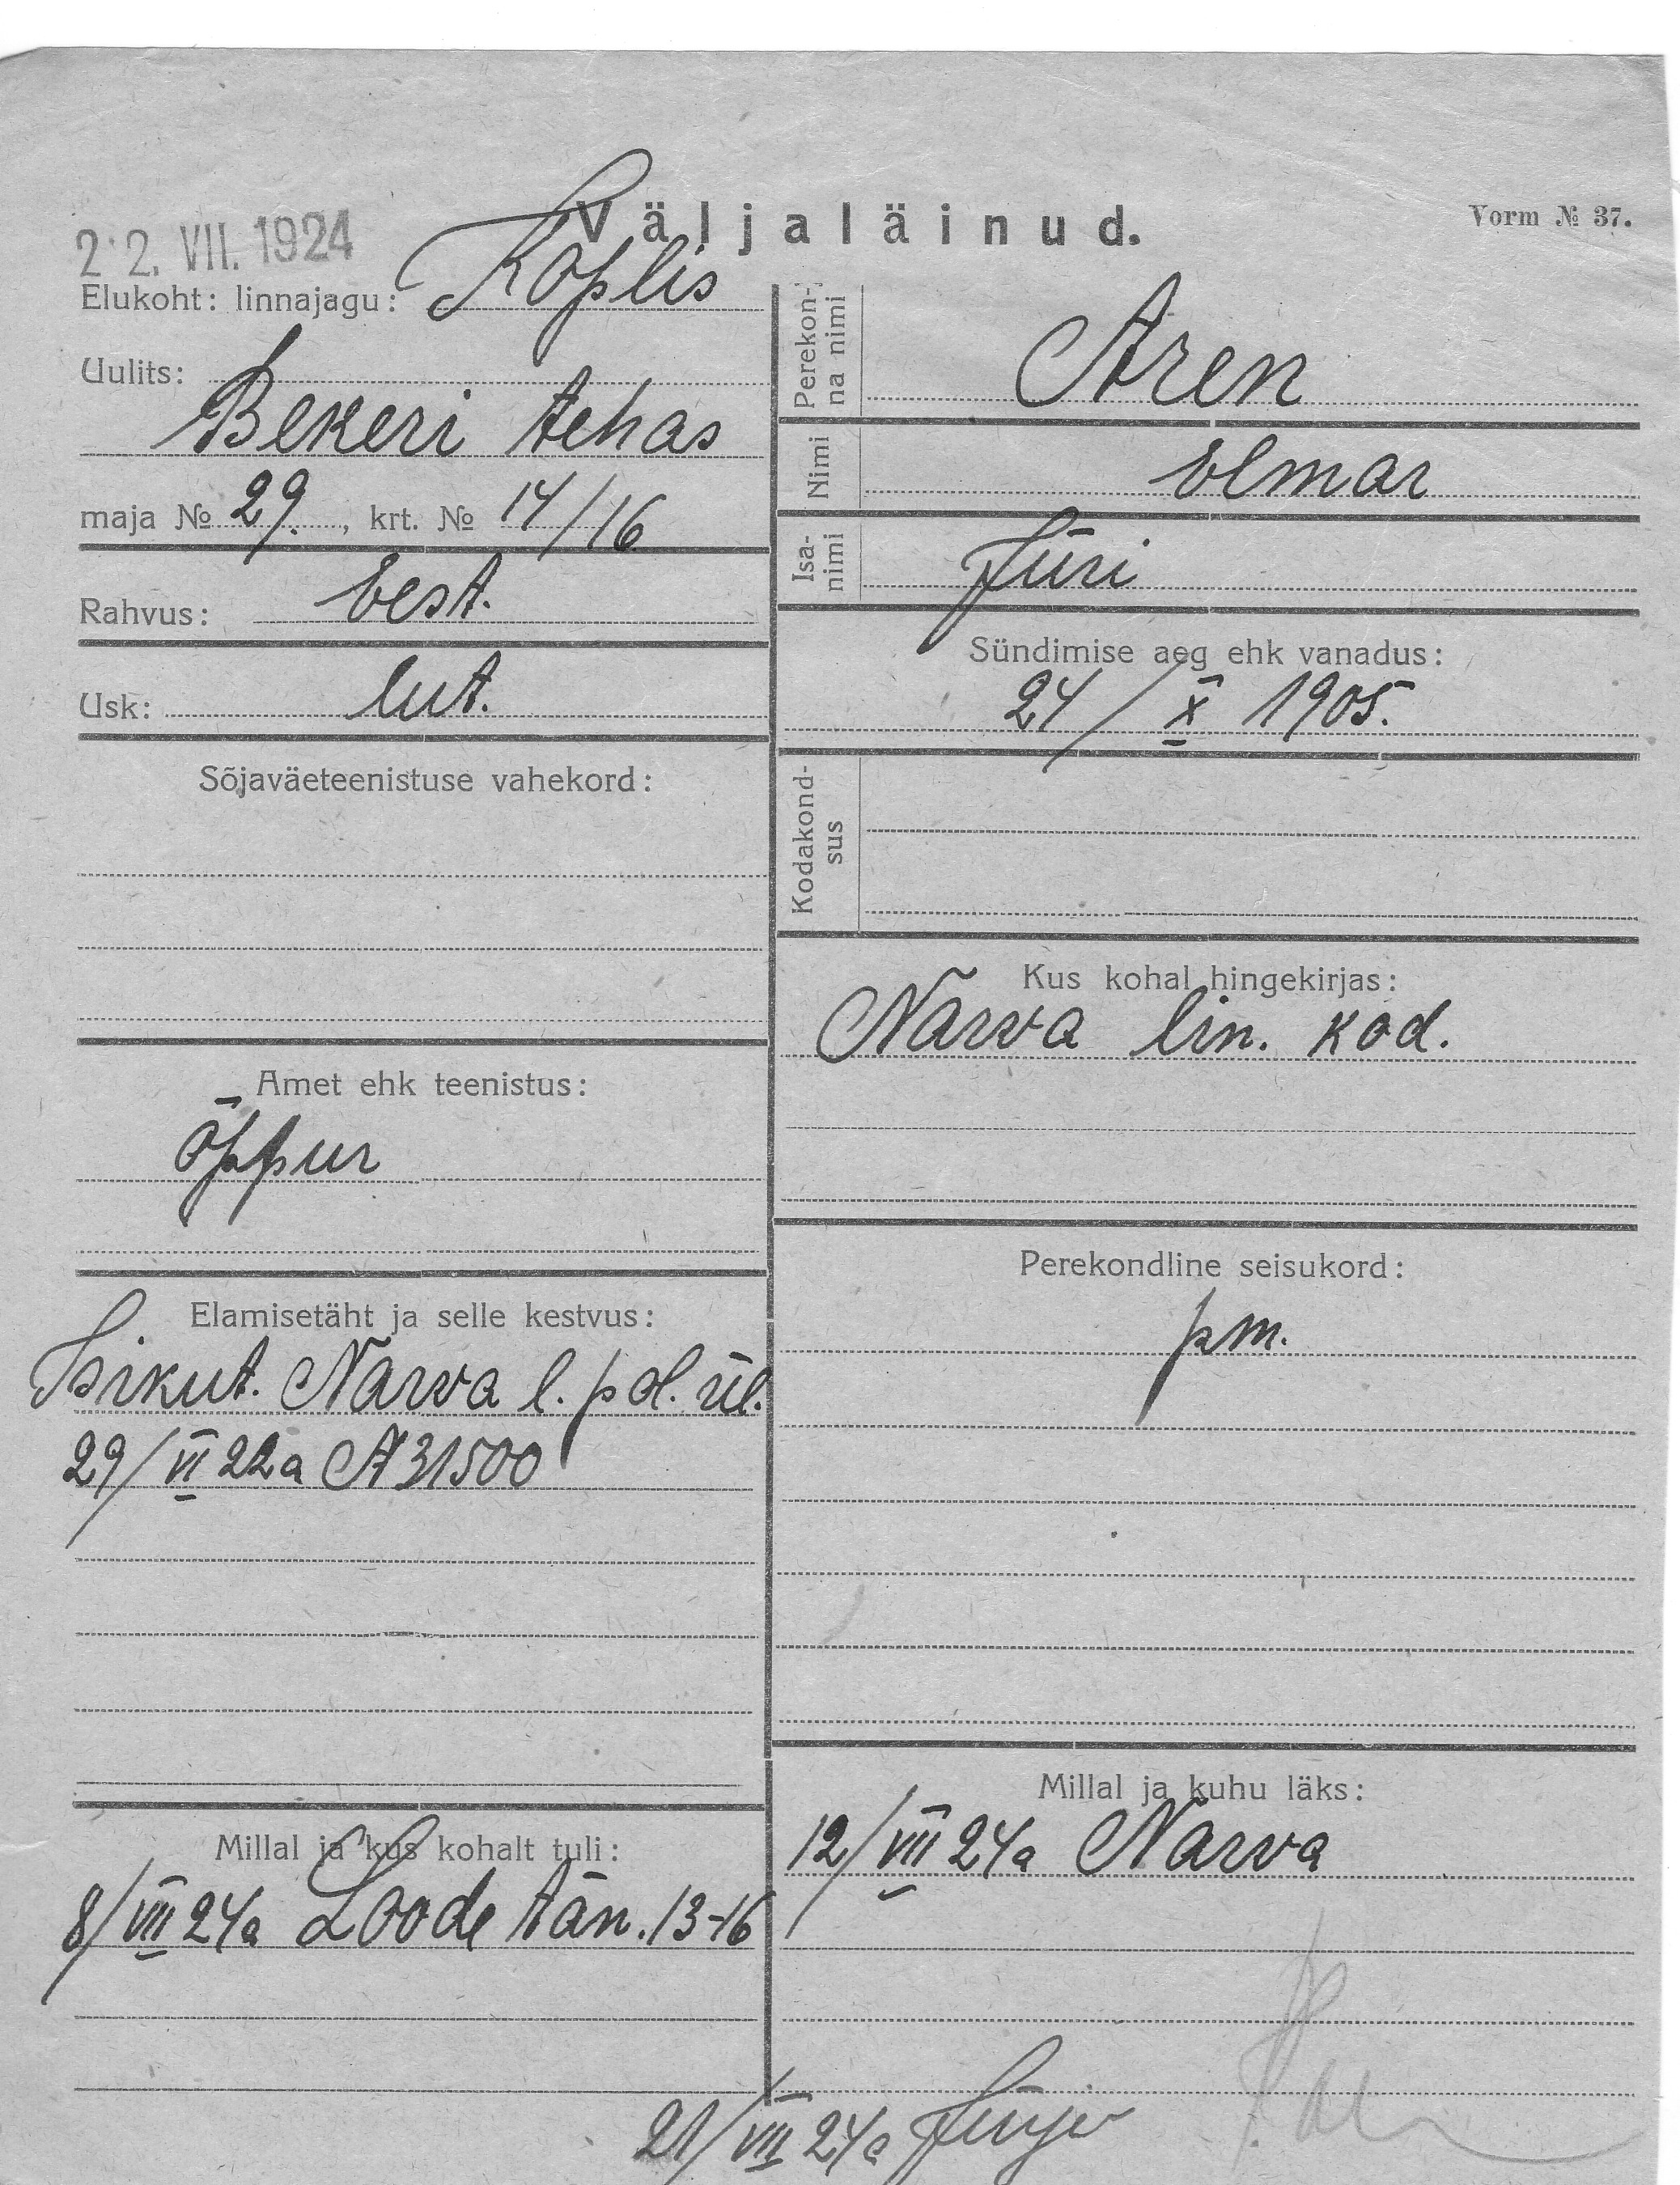 Väljaläinud.
Vorm № 37.
22. VII. 1924
Elukoht: linnajagu: Koplis
Uulits:
Bekeri tehas
maja № 29., krt. № 14/16
Rahvus: eest.
Usk: lut.
Sõjaväeteenistuse vahekord:
Amet ehk teenistus:
õppur
Elamisetäht ja selle kestvus:
Isikut. Narva l. pol. ül.
29/VI 22a A 31500
Millal ja kus kohalt tuli:
8/VII 24a Loode tän. 13-16
Perekonna nimi
Aren
Nimi
Elmar
Isanimi
Jüri
Sündimise aeg ehk vanadus:
24/X 1905.
Kodakondsus
Kus kohal hingekirjas:
Narva lin. kod.
Perekondline seisukord:
pm.
Millal ja kuhu läks:
12/VII 24a Narva
21/VII 24a